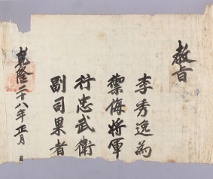 教旨
李秀逸為
禦侮將軍
行忠武衛
副司果者
乾隆二十八年正月 日